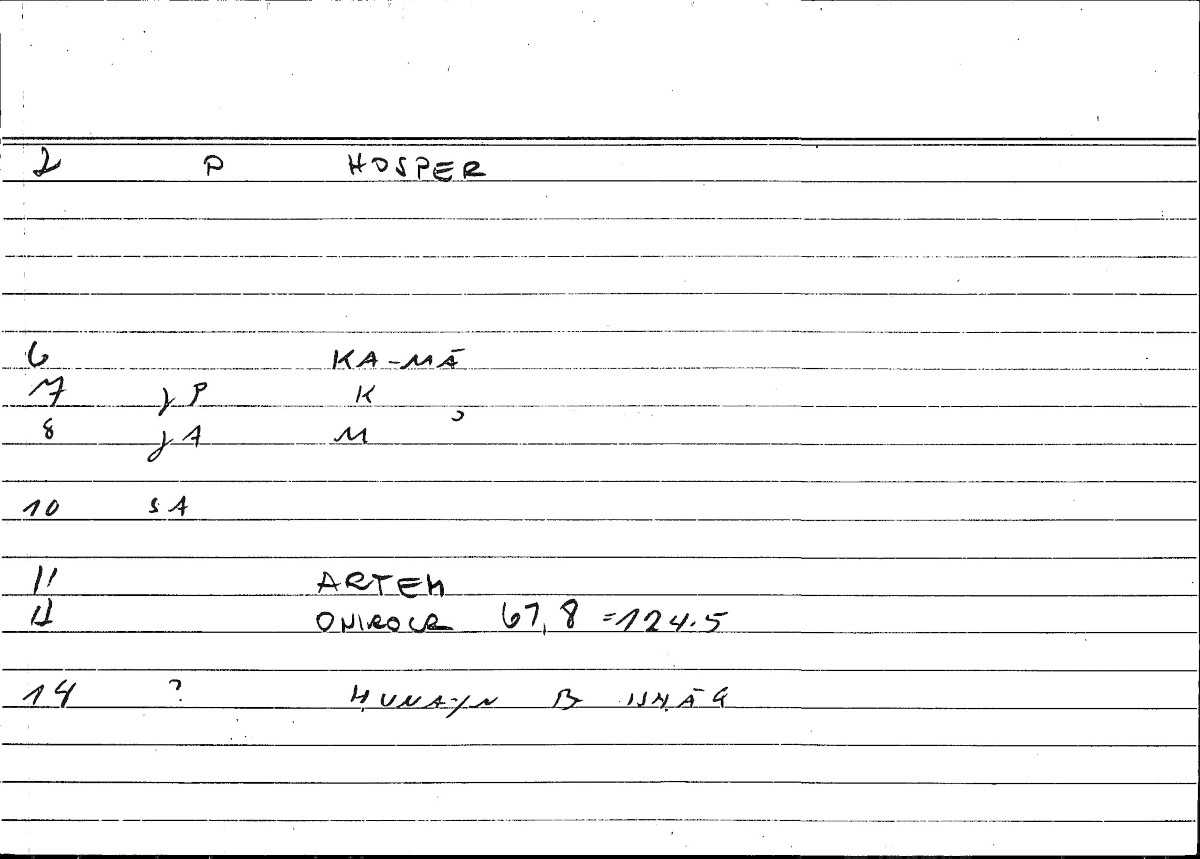 2 P HOSPER
6 KA-MĀ
7 γP K
8 γA M ʾ
10 SA
11 ARTEM
12 ONIROCR 67,8 =124.5
14 ? ḤUNAYN B ISḤĀQ